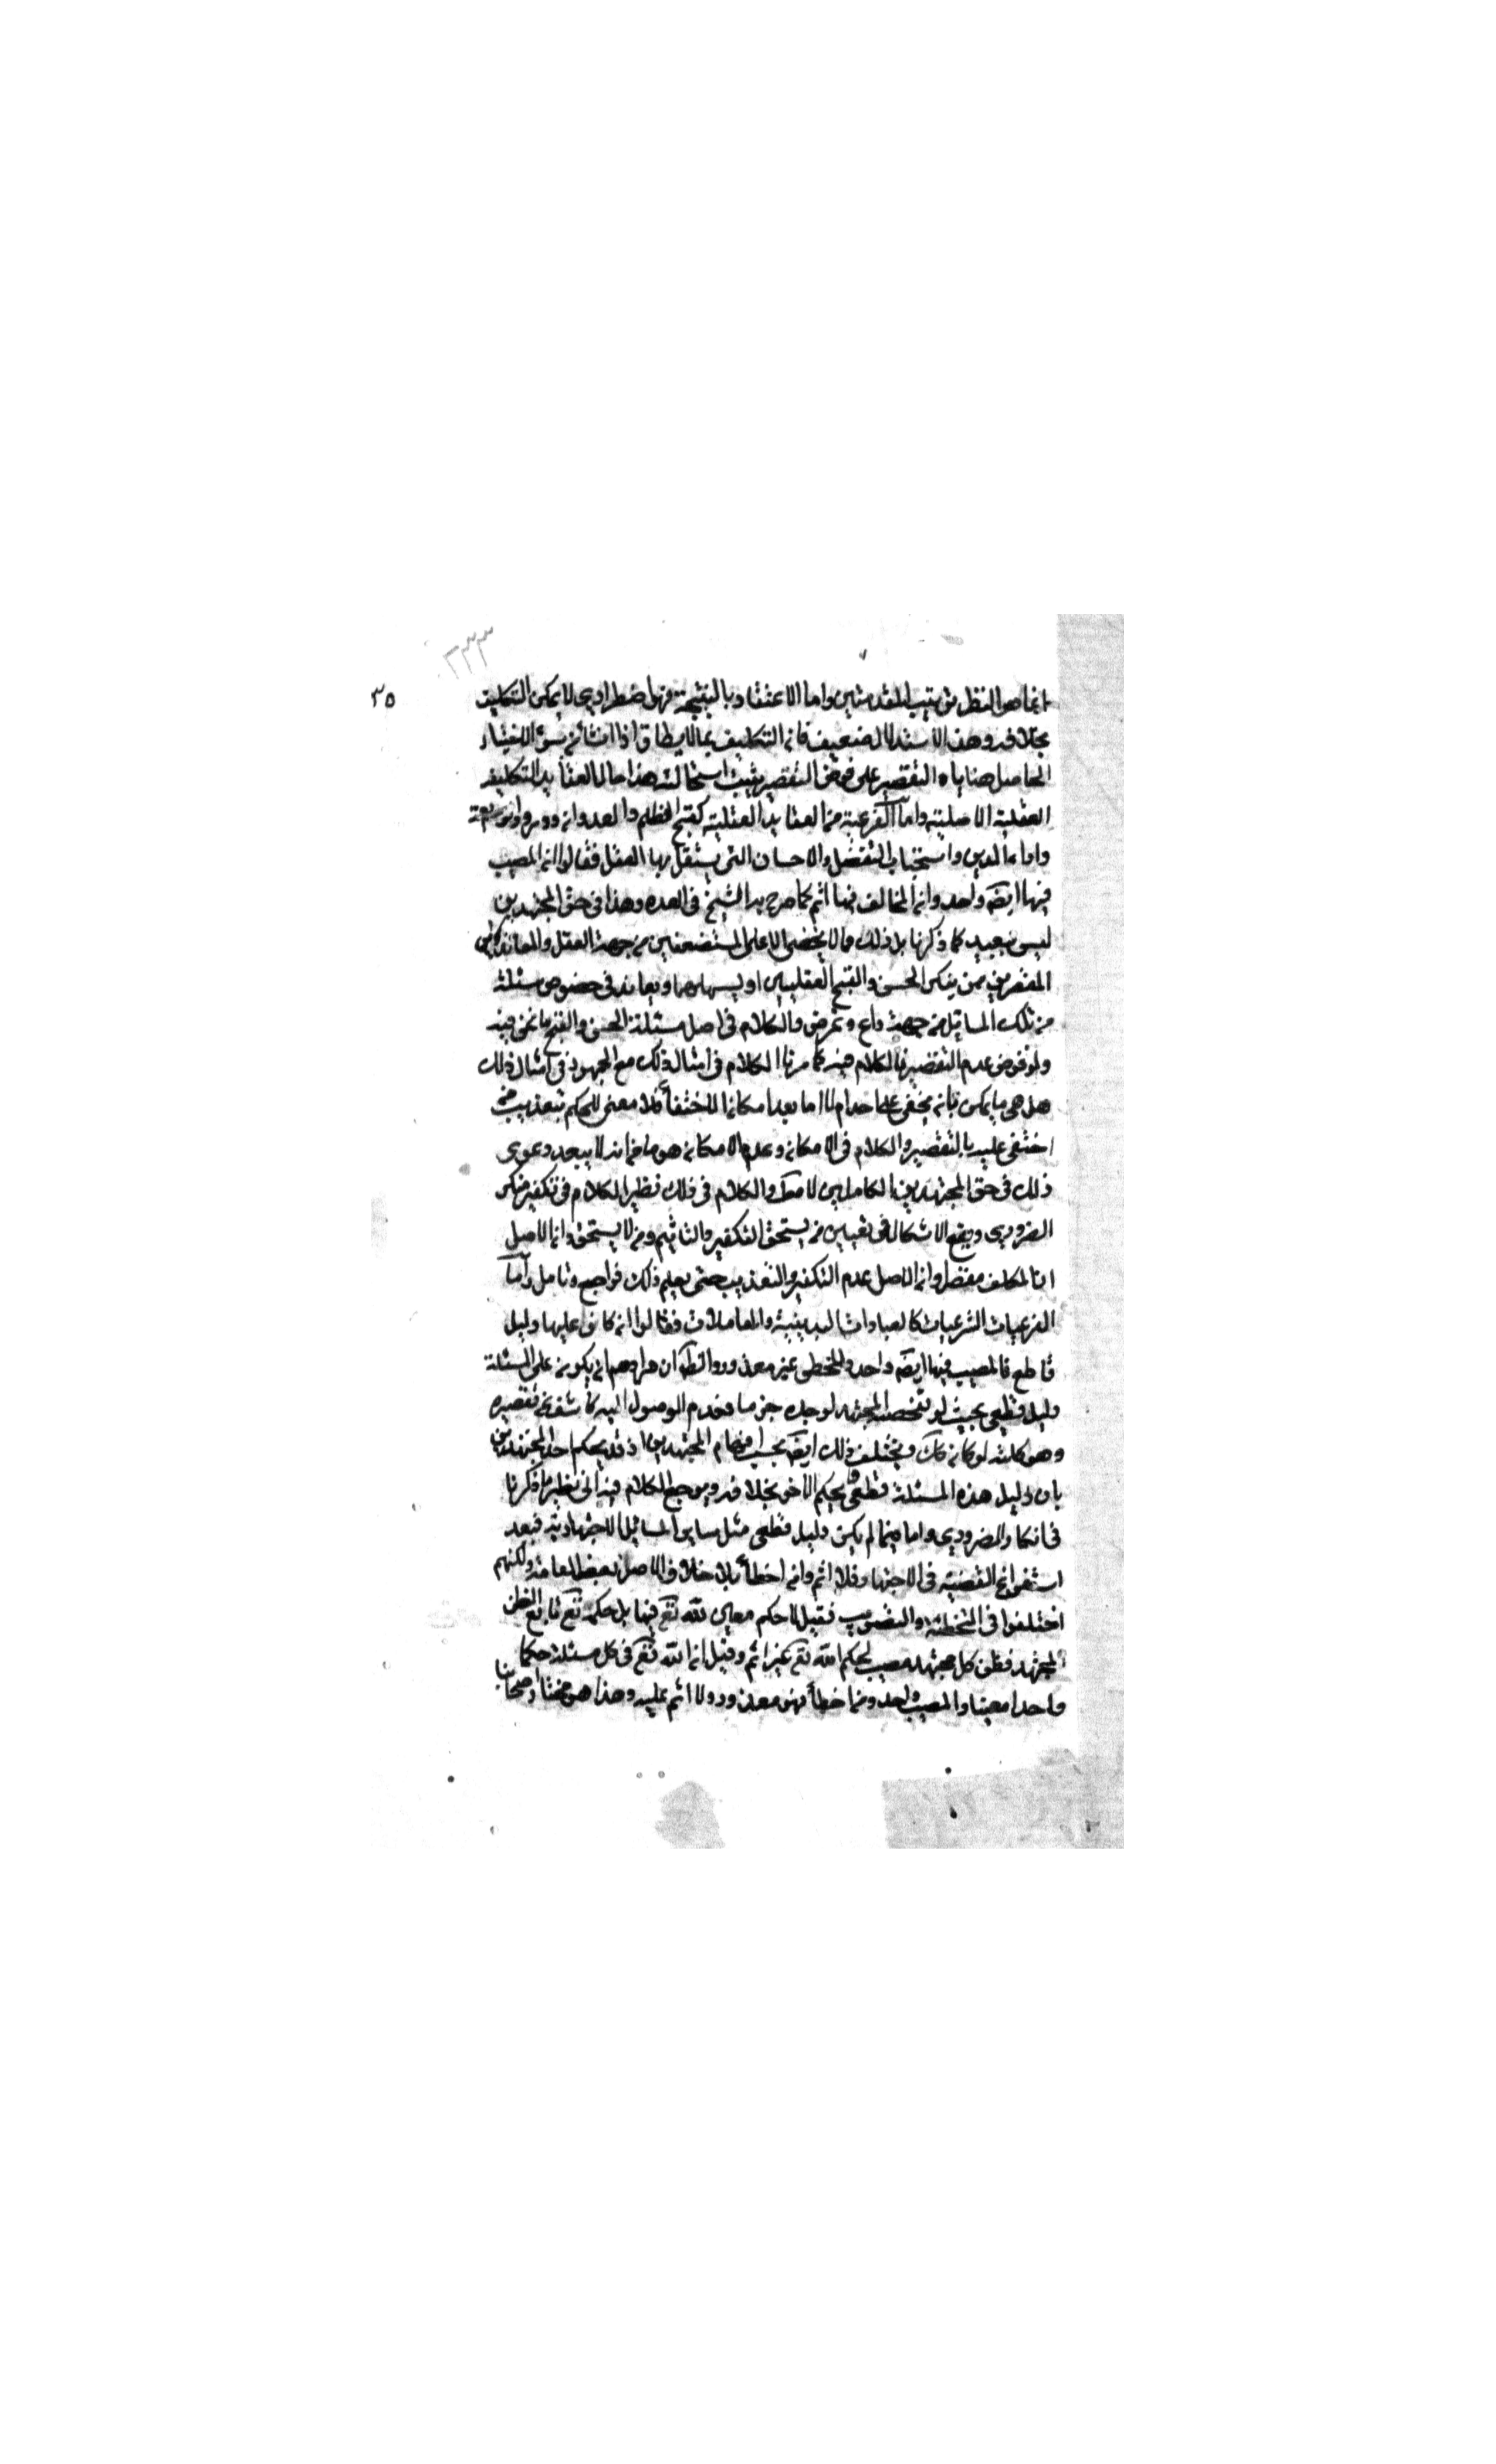 ٢٣٣
٣٥
انما هو النظر وترتيب المقدمتين واما الاعتقاد بالنتيجة فهو اضطراري لا يمكن التكليف
بخلافه وهذا الاستدلال ضعيف فان التكليف بما لا يطاق اذا نشأ من سوء الاختيار
الحاصل هنا التقصير على فرض التقصير يثبت استحالته هذا حال العقايد التكليف
العقلية الاصلية واما الفرعية من العقايد العقلية كقبح الظلم والعدوان و
واداء الدين واستحباب التفضل والاحسان التي يستقل بها العقل فقالوا ان المصيب
فيها ايضه واحد وان المخالف فيها اثم كما صرح به الشيخ في العده وهذا في حق المجتهدين
ليس ببعيد كما ذكرنا بل ذلك مما لا يخفى الا على المستضعفين من جهة العقل والمعاندين
المقصرين ممن ينكر الحسن والقبح العقليين او يسلمهما ويعاند في خصوص مسئلة
من تلك المسائل من جهة داع وغرض والكلام في اصل مسئلة الحسن والقبح ما نحن فيه
ولو فرض عدم التقصير فالكلام فيه كما مر الكلام في امثال ذلك مع الجمهور في امثال ذلك
هل هي ما يمكن بان يخفى على احد ام لا اما بعد امكان الاختفاء فلا معنى للحكم بتعذيب من
اختفى عليه بلا تقصير والكلام في الامكان وعدم الامكان هو ما مر انه لا يبعد دعوى
ذلك في حق المجتهدين الكاملين لا مطلقا والكلام في ذلك نظير الكلام في تكفير منكر
الضروري ويقع الاشكال في تعيين من يستحق التكفير والتاثيم ومن لا يستحق وان الاصل
ان المكلف مقصر او ان الاصل عدم التكفير والتعذيب حتى يعلم ذلك فراجع وتامل واما
الفرعيات الشرعيات كالعبادات البدنية والمعاملات فقالوا ان كان عليها دليل
قاطع فالمصيب فيها ايضه واحد والمخطي غير معذور والظ ان مرادهم ان يكون على المسئلة
دليل قطعي بحيث لو تفحصه المجتهد لوجده جزما فعدم الوصول اليه كاشف عن تقصيره
وهو كذلك لو كان كك ويختلف ذلك ايضه بحسب افهام المجتهدين اذ قد يحكم احد المجتهدين
بان دليل هذه المسئلة قطعي ويحكم الاخر بخلافه ويرجع الكلام فيه الى نظير ما ذكرنا
في انكار الضروري واما فيما لم يكن دليل قطعي مثل ساير المسائل الاجتهادية فبعد
استفراغ في الاجتهاد فلا اثم وان اخطأ بلا خلاف الا من بعض العامة ولكنهم
اختلفوا في التخطئة والتصويب فقيل لا حكم معين لله تع فيها بل حكمه تع تابع لظن
المجتهد فظن كل مجتهد مصيب لحكم الله تع غير اثم وقيل ان الله تع في كل مسئلة حكما
واحدا معينا والمصيب واحد ومن اخطأ فهو معذور ولا اثم عليه وهذا هو مختار اصحابنا